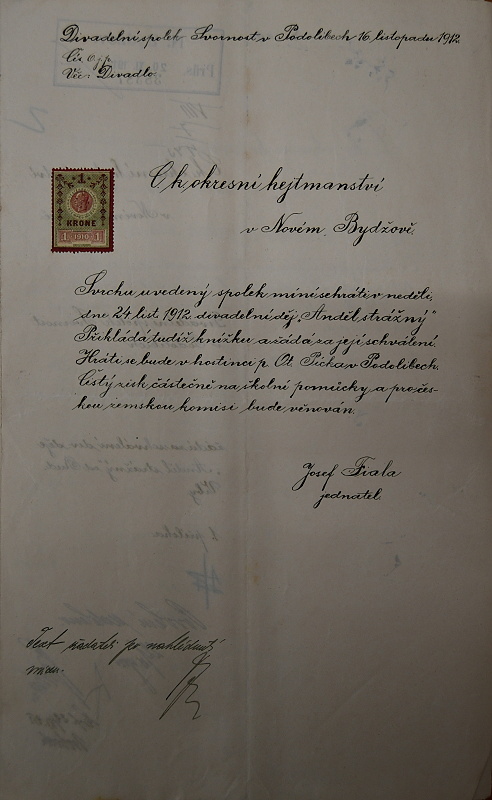 Divadelní spolek Svornost v Podolibech 16. listopadu 1912.
Čís.
Věc: Divadlo.
1
KRONE
1 1910 1
C. k. okresní hejtmanství
v Novém Bydžově.
Svrchu uvedený spolek míní sehráti v neděli,
dne 24. list. 1912. divadelní děj „Anděl strážný"
Přikládá tudíž knížku a žádá za její schválení.
Hráti se bude v hostinci p. Ot. Picka v Podolibech.
Čistý zisk částečně na školní pomůcky a pro čes-
kou zemskou komisi bude věnován.
Josef Fiala
jednatel.
Text žadateli po nahlédnutí